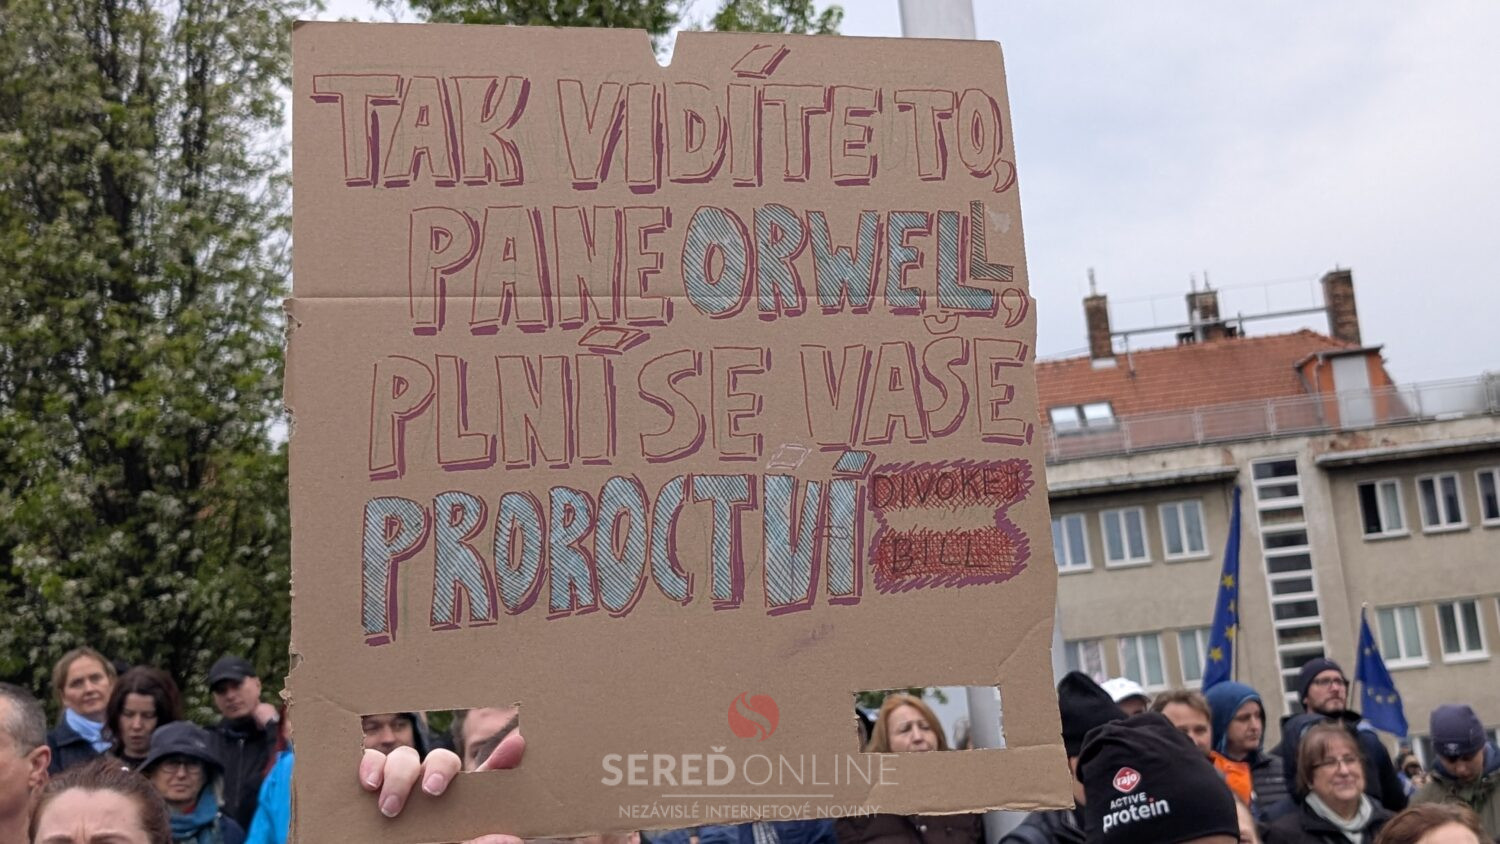 TAK VIDÍTE TO,
PANE ORWELL,
PLNÍ SE VAŠE
PROROCTVÍ
DIVOKEJ
BILL
SEREĎ ONLINE
NEZÁVISLÉ INTERNETOVÉ NOVINY
rajo
ACTIVE
protein